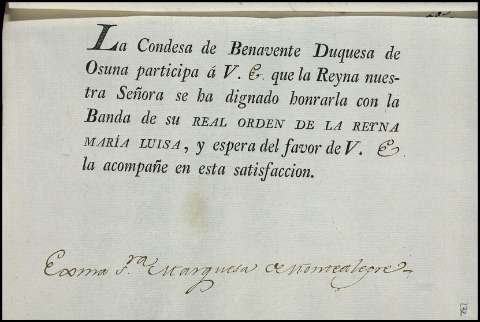 La Condesa de Benavente Duquesa de
Osuna participa á V. E. que la Reyna nues-
tra Señora se ha dignado honrarla con la
Banda de su REAL ORDEN DE LA REYNA
MARÍA LUISA, y espera del favor de V. E.
la acompañe en esta satisfaccion.
Exma S.ra Marquesa de Montealegre